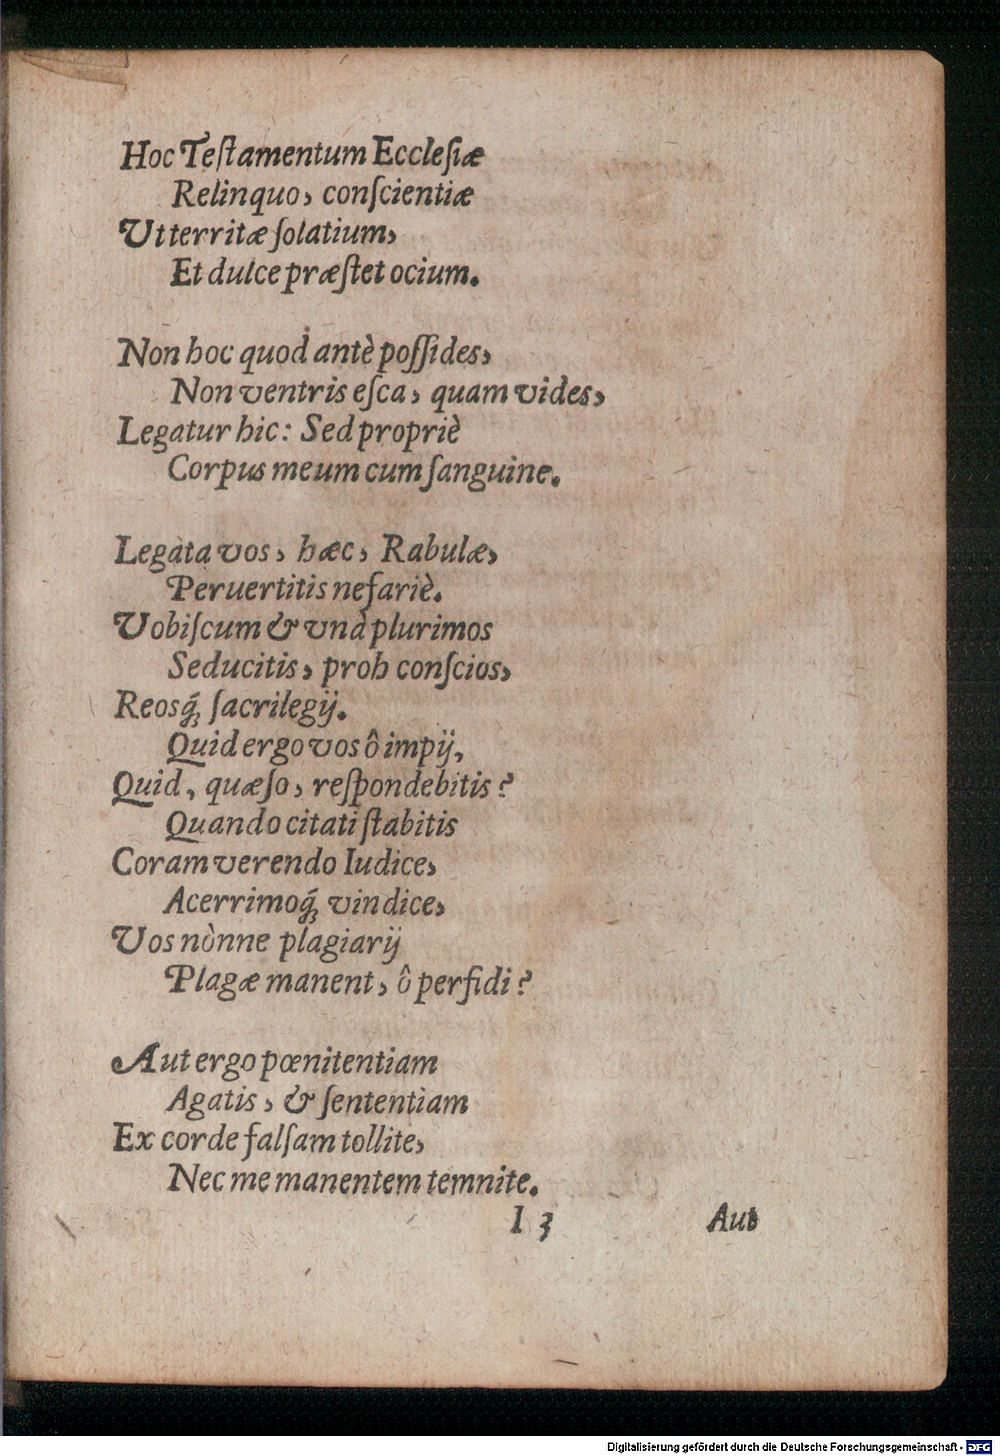 Hoc Teſtamentum Eccleſiæ
Relinquo, conſcientiæ
Ut territæ ſolatium,
Et dulce præſtet ocium.
Non hoc quod antè poſſides,
Non ventris eſca, quam vides,
Legatur hic: Sed propriè
Corpus meum cum ſanguine.
Legata vos, hæc, Rabulæ,
Peruertitis nefariè.
Vobiſcum & vnà plurimos
Seducitis, proh conſcios,
Reosq́; ſacrilegij.
Quid ergo vos ô impij,
Quid, quæſo, reſpondebitis?
Quando citati ſtabitis
Coram verendo Iudice,
Acerrimoq́; vindice,
Vos nònne plagiarij
Plagæ manent, ô perfidi?
Aut ergo pœnitentiam
Agatis, & ſententiam
Ex corde falſam tollite,
Nec me manentem temnite.
I 3 Aut
Digitalisierung gefördert durch die Deutsche Forschungsgemeinschaft - DFG